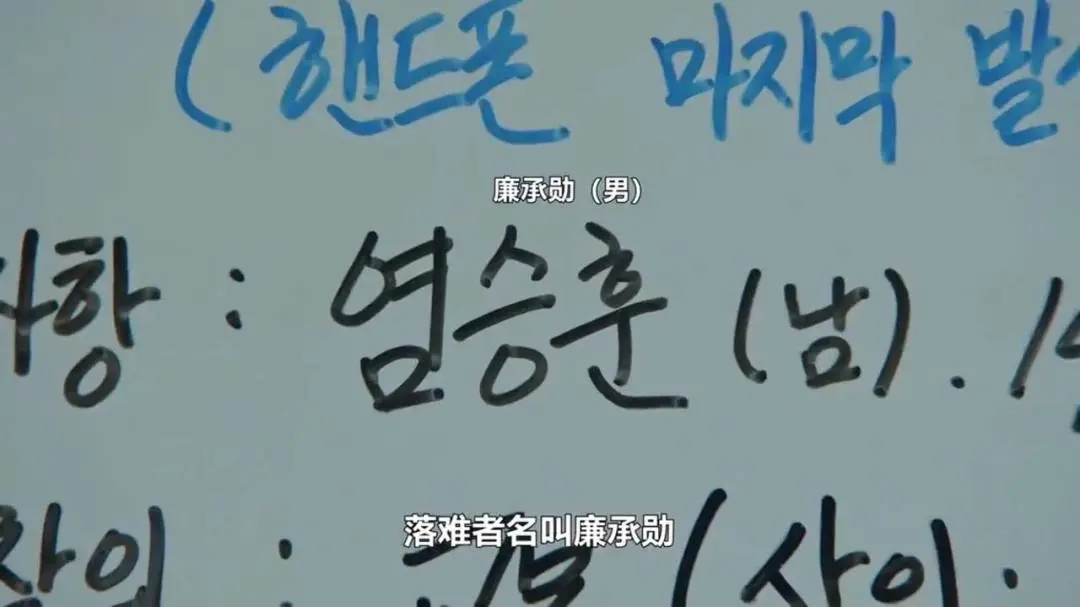 (핸드폰 마지막 발
廉承勋（男）
사항 : 염승훈 (남). 1
落难者名叫廉承勋
: (사이.